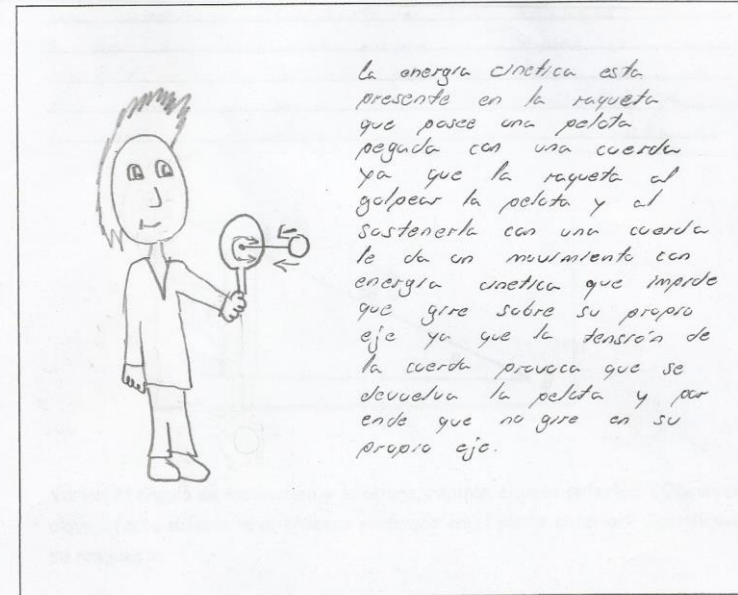 la energia cinetica esta
presente en la raqueta
que posee una pelota
pegada con una cuerda
ya que la raqueta al
golpear la pelota y al
sostenerla con una cuerda
le da un movimiento con
energia cinetica que impide
que gire sobre su propio
eje ya que la tensión de
la cuerda provoca que se
devuelva la pelota y por
ende que no gire en su
propio eje.